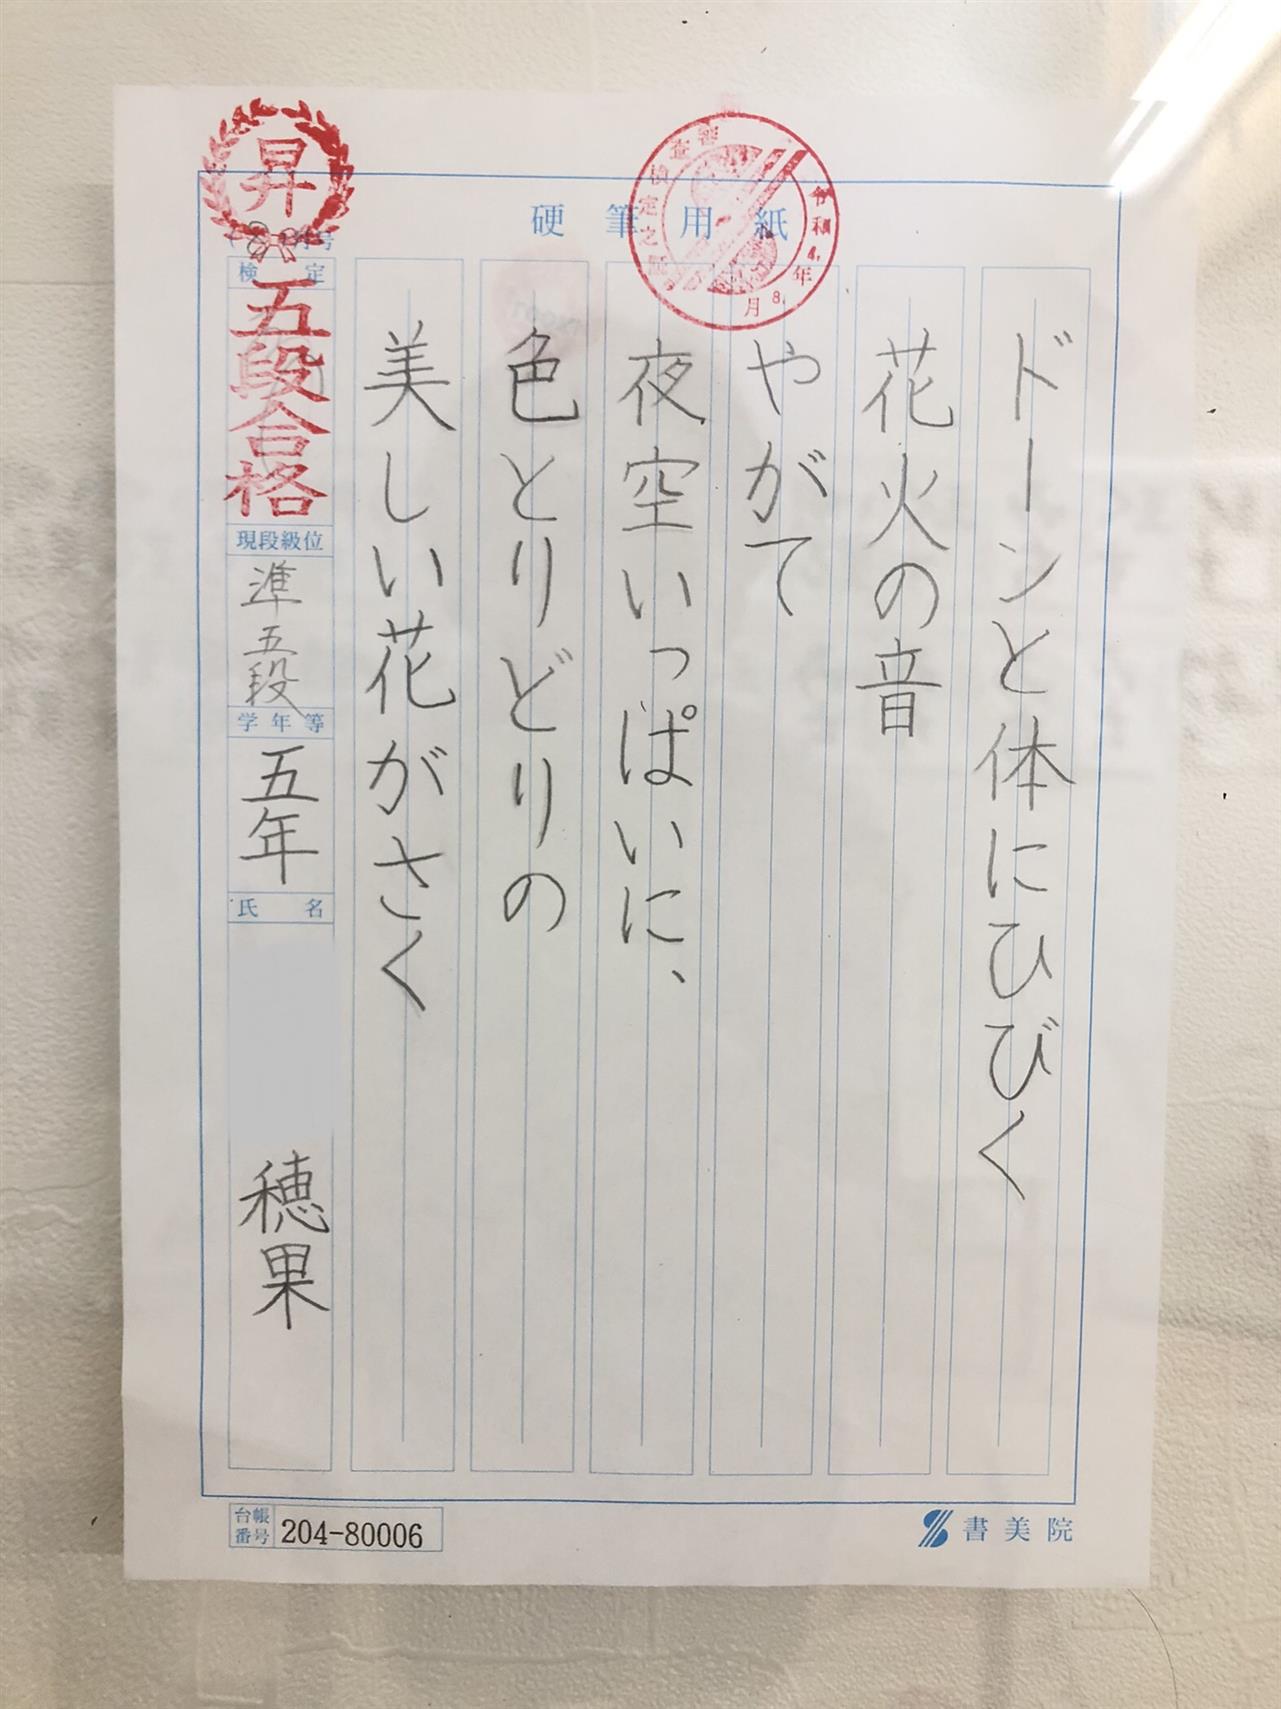 硬筆用紙
審査検定之証
令和4年8月
ドーンと体にひびく
花火の音
やがて
夜空いっぱいに、
色とりどりの
美しい花がさく
昇
号
検定
五段合格
現段級位
準五段
学年等
五年
氏名
穂果
台帳番号 204-80006
書美院